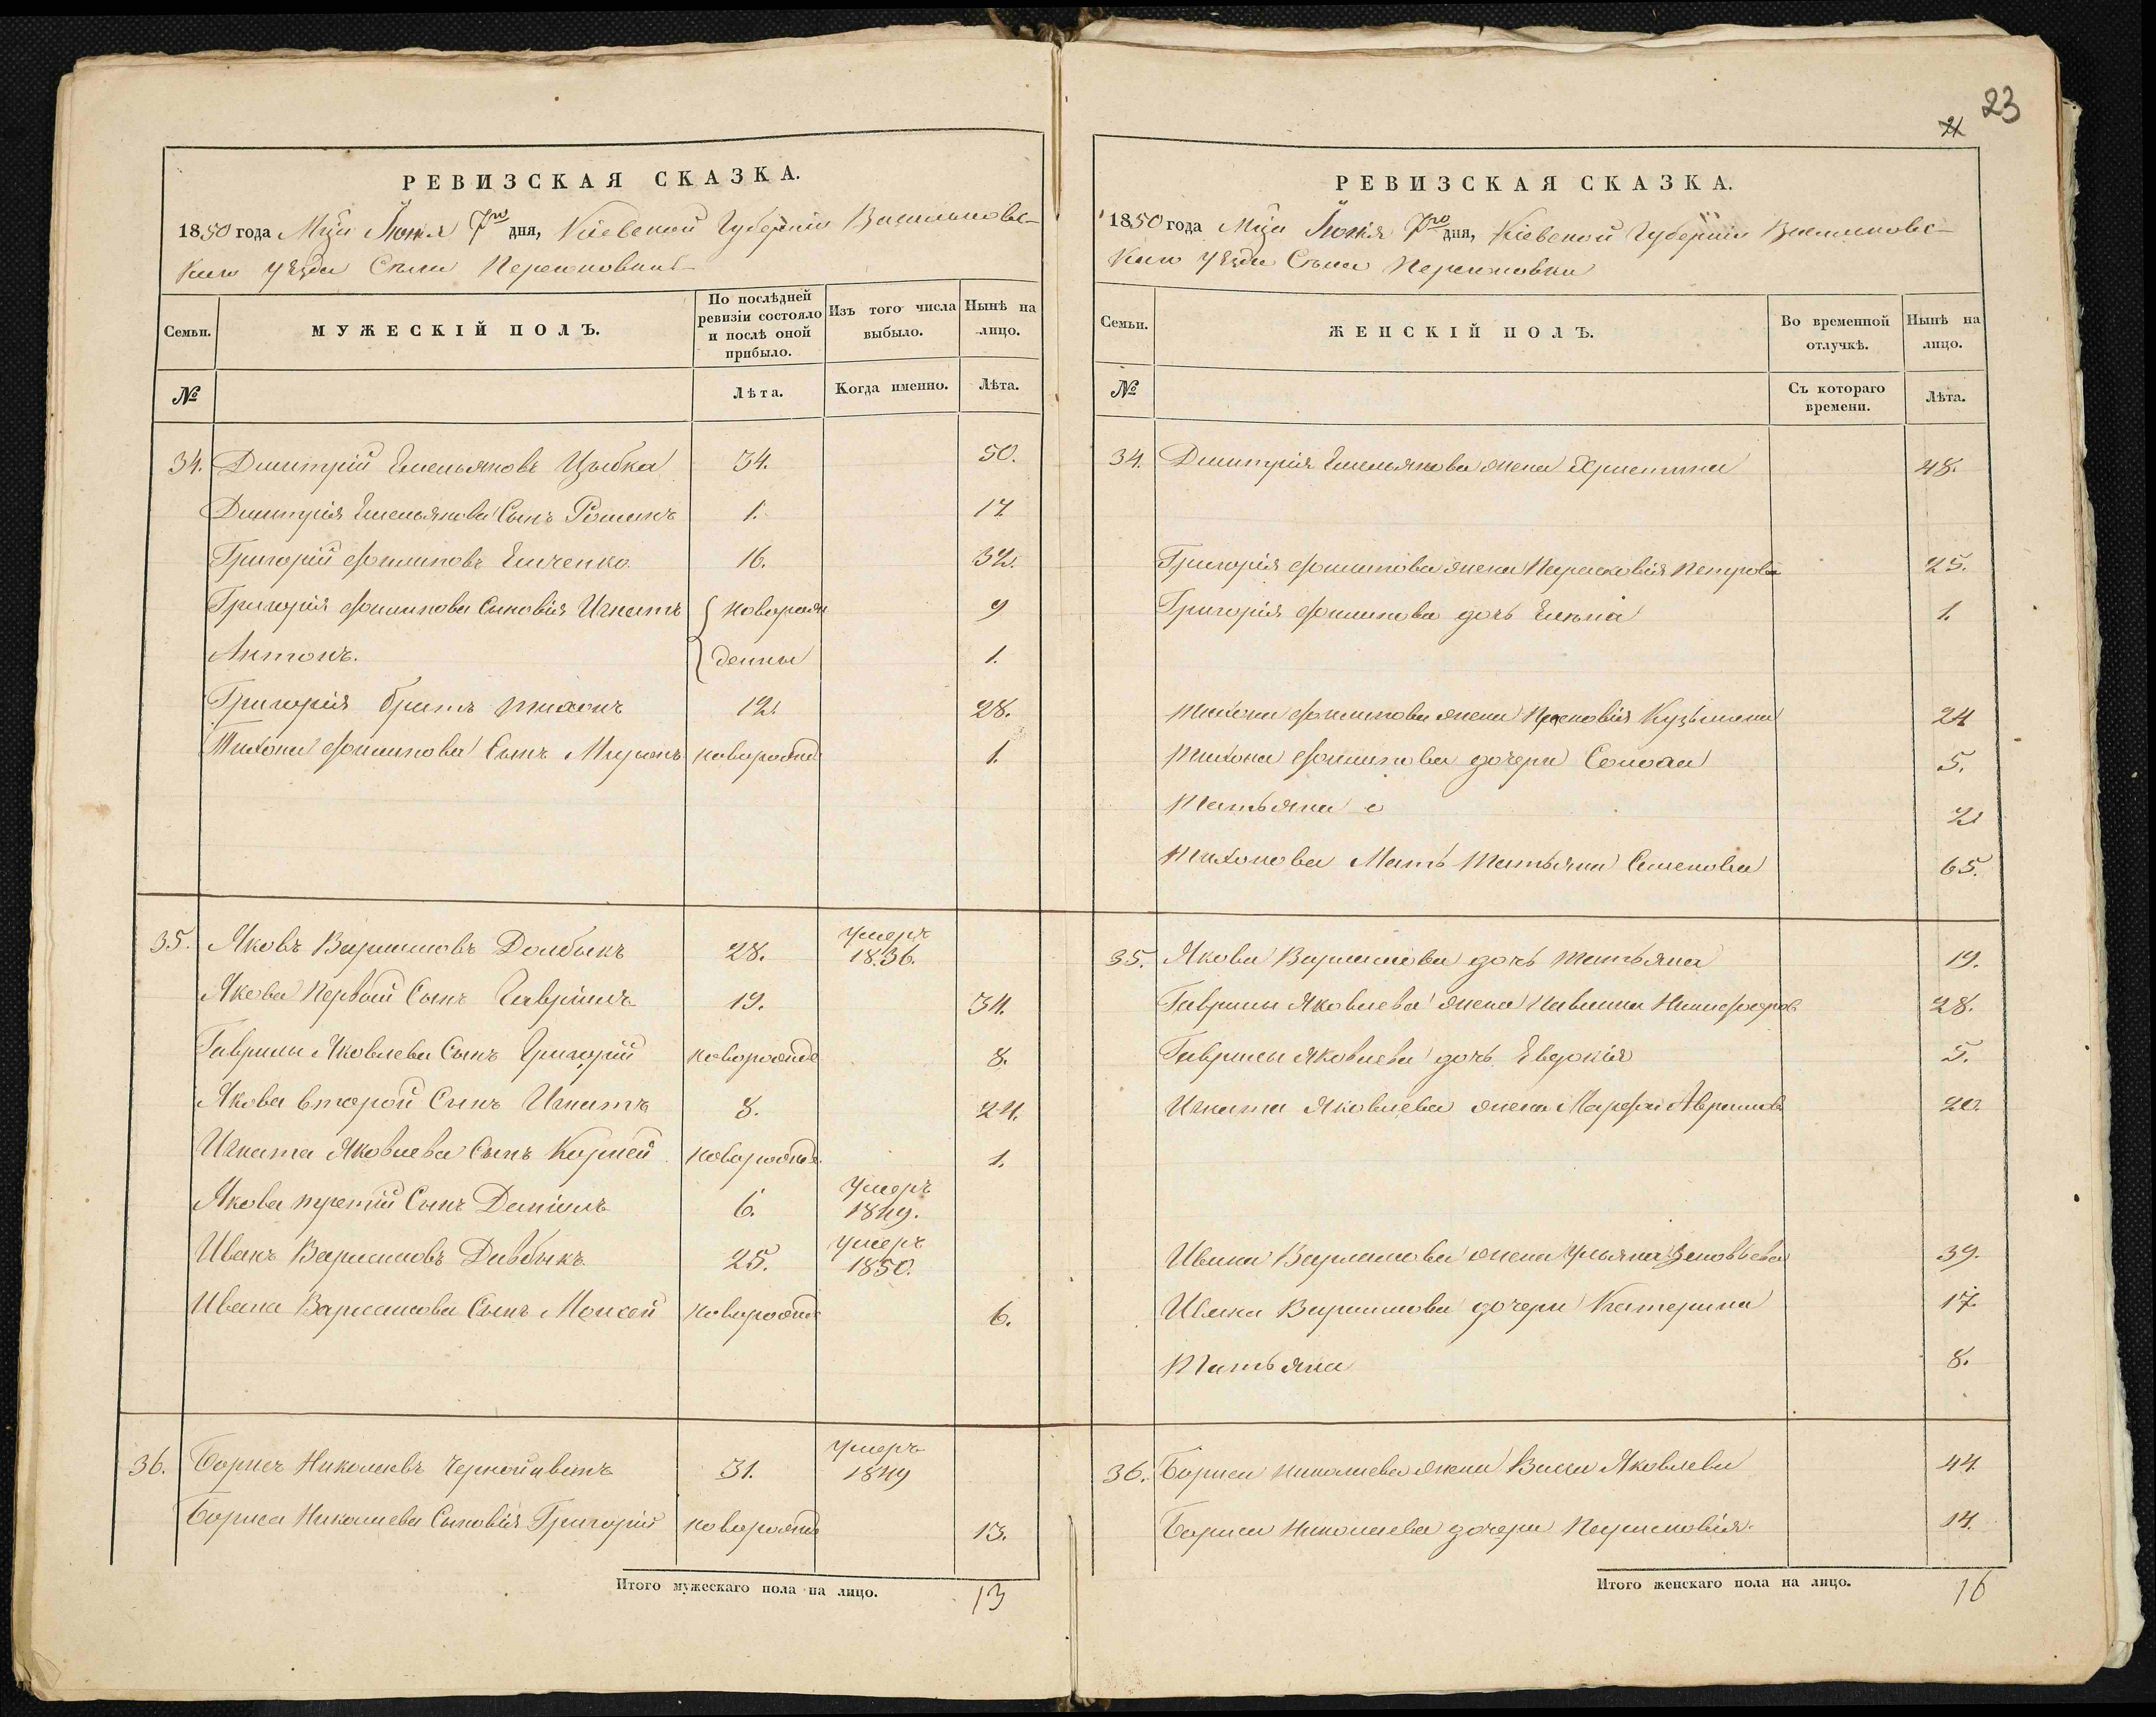 23
21
РЕВИЗСКАЯ СКАЗКА.
1850 года Мца Іюня 7го дня, Кіевской Губерніи Васильковс-
каго уѣзда Села
Семьи.
МУЖЕСКІЙ ПОЛЪ.
По послѣдней ревизіи состояло и послѣ оной прибыло.
Изъ того числа выбыло.
Нынѣ на лицо.
№
Лѣта.
Когда именно.
Лѣта.
34. Дмитрій Емельяновъ Цыбка 34. 50.
Дмитрія Емельянова Сынъ Романъ 1. 17
Григорій Филиповъ Емченко 16. 32.
Григорія Филипова Сыновія Игнатъ новорож 9
Антонъ. денны 1.
Григорія братъ Тихонъ 12. 28.
Тихона Филипова Сынъ Миронъ новорожд 1.
35. Яковъ Варламовъ Долбыкъ 28. умеръ 1836.
Якова Первый Сынъ Гаврилъ 19. 34.
Гаврилы Яковлева Сынъ Григорій новорожде 8.
Якова второй Сынъ Игнатъ 8. 24.
Игната Яковлева Сынъ Корней новорожде. 1.
Якова третій Сынъ Даніилъ 6. умеръ 1849.
Иванъ Варламовъ Дивбыкъ 25. умеръ 1850.
Ивана Варламова Сынъ Моисей новорожд 6.
36. Борисъ Николаевъ 31. умеръ 1849
Бориса Николаева Сыновія Григорій новорожд 13.
Итого мужескаго пола на лицо. 13
РЕВИЗСКАЯ СКАЗКА.
1850 года Мца Іюня 7го дня, Кіевской Губерніи Васильковс-
каго уѣзда Села
Семьи.
ЖЕНСКІЙ ПОЛЪ.
Во временной отлучкѣ.
Нынѣ на лицо.
№
Съ котораго времени.
Лѣта.
34. Дмитрія Емельянова жена Христина 48.
Григорія Филипова жена Парасковія Петрова 25.
Григорія Филипова дочь Елена 1.
Тихона Филипова жена Кузьмина 24
Тихона Филипова дочери 5.
Татьяна 2
Тихонова Мать Татьяна Семенова 65.
35. Якова Варламова дочь Татьяна 19.
Гаврилы Яковлева жена 28.
Гаврилы Яковлева дочь Евдокія 5.
Игната Яковлева жена Марфа Аврамова 20.
Ивана Варламова жена Ульяна Зиновьева 39.
Ивана Варламова дочери Катерина 17.
Татьяна 8.
36. Бориса Николаева жена Васса Яковлева 44.
Бориса Николаева дочери Парасковія. 14.
Итого женскаго пола на лицо. 16